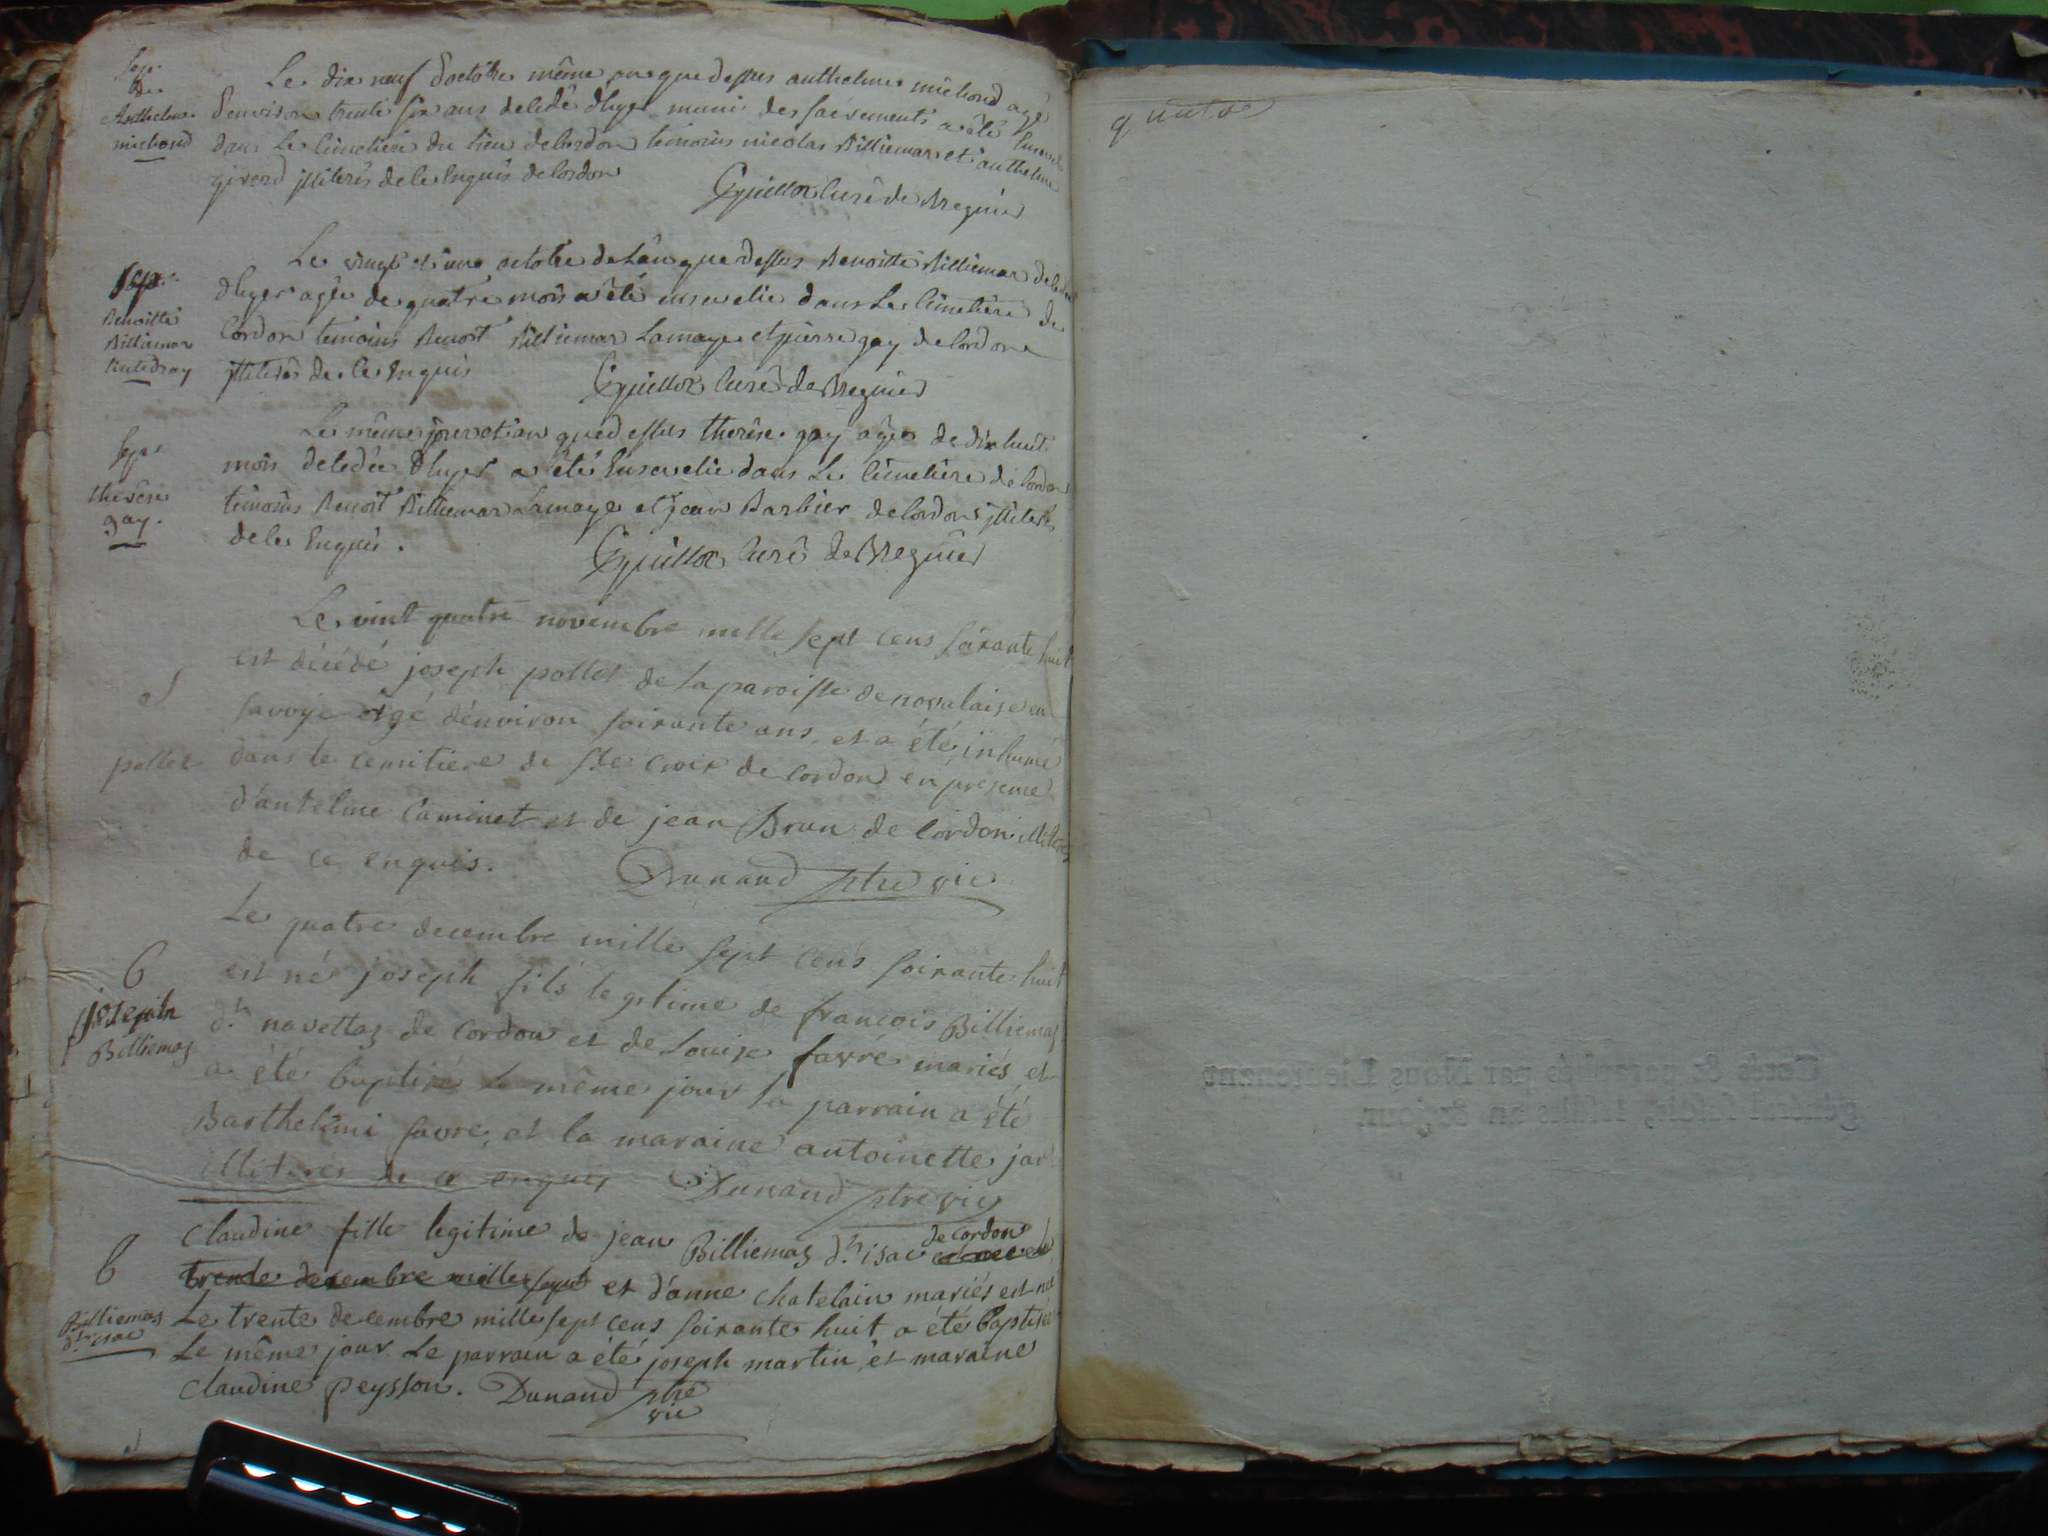 Sep.
de
Anthelme
michoud
Le dix neuf d'octobre même an que dessus anthelme michoud agé
d'environ trente six ans muni des sacrements a été
dans le cimetiere du lieu de Cordon temoins nicolas Billiemaz et anthelme
illiterés de ce Enquis de Cordon
curé de Bregnier
Sep.
Benoitte
Billiemaz
Le vingt et une octobre de L'an que dessus Benoitte Billiemaz
agée de quatre mois a été ensevelie dans Le Cimetiere de
Cordon temoins Benoit Billiemaz Lamaye et pierre gay de Cordon
illiterés de ce Enquis
curé de Bregnier
Sep.
therèse
gay.
Le même jour et an que dessus therèse gay agée de dix huit
mois a été Ensevelie dans Le Cimetiere de Cordon
temoins Benoit Billiemaz Lamaye et jean Barbier de Cordon illiterés
de ce Enquis.
curé de Bregnier
S
pollet
Le vint quatre novembre mille sept cens soixante huit
est décédé joseph pollet de la paroisse de novalaise en
Savoye agé d'environ soixante ans et a été inhumé
dans le cemitiere de Ste Croix de Cordon en presence
d'antelme Caminet et de jean Brun de Cordon illiteres
de ce enquis.
Dunand ptre vic
B
joseph
Billiemaz
Le quatre decembre mille sept cens soixante huit
est né joseph fils legitime de françois Billiemaz
dt navettaz de Cordon et de Louise favre mariés et
a été baptisé le même jour le parrain a été
Barthelmi favre, et la maraine antoinette
illiteres de ce enquis Dunand ptre vic
B
Billiemaz
dt isac
Claudine fille legitime de jean Billiemaz dt isac de cordon
trente decembre mille sept et d'anne chatelain mariés est né
Le trente decembre mille sept cens soixante huit a été baptisée
Le même jour. Le parrain a été joseph martin et maraine
Claudine peysson. Dunand ptre
vic
Cotés & paraphés par Nous Lieutenant